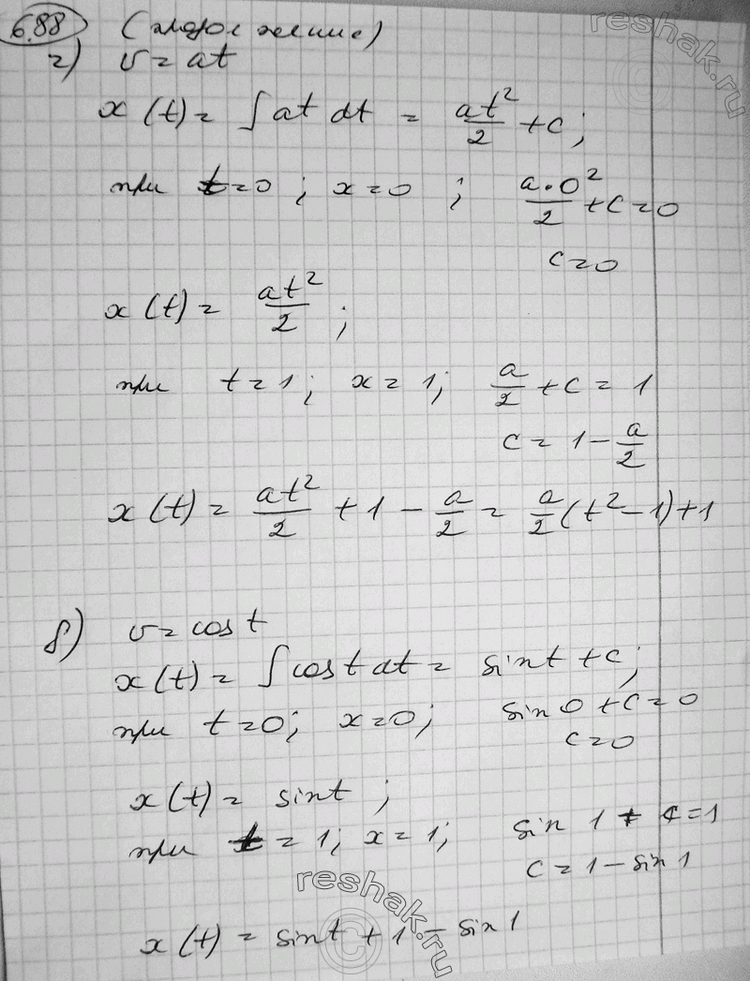 6.88 (продолжение)
г) v = at
x(t) = ∫ at dt = at²/2 + c;
при t=0; x=0; a·0²/2 + c = 0
c=0
x(t) = at²/2;
при t=1; x=1; a/2 + c = 1
c = 1 - a/2
x(t) = at²/2 + 1 - a/2 = a/2(t²-1)+1
д) v = cos t
x(t) = ∫ cos t dt = sin t + c;
при t=0; x=0; sin 0 + c = 0
c=0
x(t) = sin t;
при t=1; x=1; sin 1 + c = 1
c = 1 - sin 1
x(t) = sin t + 1 - sin 1
reshak.ru
reshak.ru